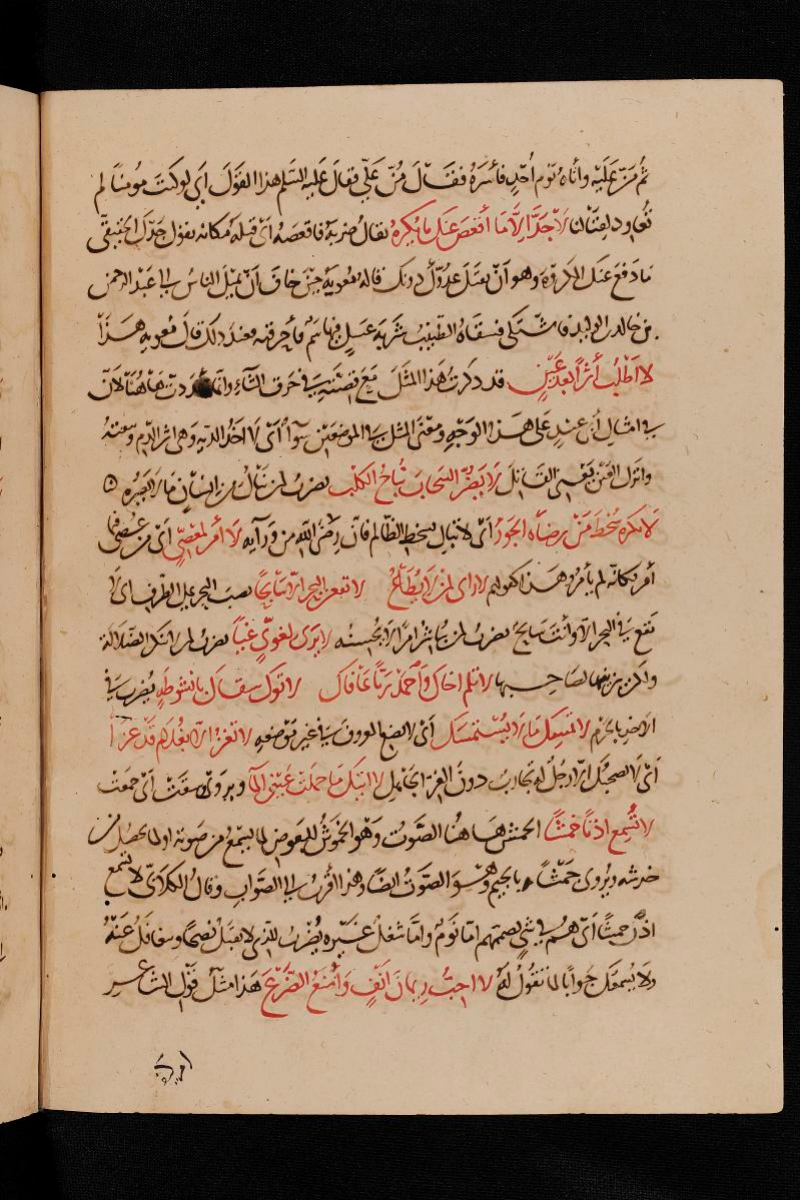 ثم مَنَّ عَلَيْه وأتاه يوم أُحُدٍ فأَسَرَهُ فقَالَ مُنَّ عَلَيَّ فقالَ عَلَيْهِ السَّلم هذا القَوْلَ أي لو كنت مؤمنًا لم
تُعَاوِد لِقِتَالِنا لَا جَدَّ إِلَّا مَا أَقْعَصَ عَنكَ مَا تَكْرَهُ يقالُ ضربه فأقعصه أي قتله مكانه يقول جَدُّكَ الحَقِيقيّ
مَا دَفَعَ عنك المكروه وهو أنْ يقتل عَدُوَّكَ دونك قاله معوية حينَ خافَ أنْ يَمِيلَ الناسُ إلى عَبْد الرحمن
بن خالد بن الوليد فاشتكى فسقاهُ الطبيبُ شربة عَسَلٍ فيها سَمٌّ فأحرقته فعند ذلك قالَ معوية هَذَا
لا أَطْلُبُ أَثَرًا بَعْدَ عَيْنٍ قد ذكرتُ هَذا المثَلَ مَعَ قصته في حَرف التَّاءِ وإنما هَاهُنَا لأنّ
في امثالِ أبي عبيدٍ عَلَى هَذا الوَجْهِ ومَعْنَى المثل في الموضعَيْن سَوآءٌ أيْ لَا آخُذُ الديه وهي اثر الدم وتبعتهُ
واترك العَيْن يَعْنِي القَاتِلَ لَا يَضُرُّ السَّحابَ نُبَاحُ الكَلْب يضربُ لمن يَنَالُ من انسانٍ مَا لَا يَضُرُّهُ
لَا تَكْرَه سُخْطَ مَنْ رِضَاه الجَورُ أيْ لا تبالِ بسخط الظّالم فانّ رضَى اللهِ من وَرَآيه لَا أَمْرَ لمَعْصِيٍّ أيْ مَن عُصِي فيما
أمر فكانّه لم يأمر وهَذا كقولهم لا رأى لِمَنْ لا يُطَاعُ لا تقعن البحر إلّا سَابِحًا نصب البحر على الظرف اي لَا
تقع في البحر إلّا وأنتَ سَابحٌ يضربُ لمن يُبَاشِر أمرًا لا يُحْسِنُه لا يَرَى لِغَوِيٍّ غَيًّا يضربُ لمن لا ينكر الضَّلالة
ولكن يزينها لصَاحِبها لا تلم أخاك وَاحْمَدْ رَبًّا عَافَاك لا تُوكِ سِقَاكَ بِأُنشُوطَةٍ يُضرب في
الاخذ بالحزم لا تُمْسِك مَا لا يُسْتَمْسَك أيْ لا تضع المعروفَ في غير مَوضعه لا تغز الّا بغُلامٍ قَدْ غزا
أيْ لا يصحبكَ إلا رجلٌ له تجارِبُ دونَ الغِرِّ الجَاهِل لا أبتك مَا حَملَتْ عَيْنِي المآ ويروى وسقَتْ أيْ جمعَتْ
لا تُسمِع اذنًا خمشًا الخمش هَاهُنَا الصَّوت وهَو الخَمُوشُ للبعوضِ لما يسمعُ من صَوته اولما يحصُل من
خدشه ويُروى جَمْشًا بالجيم وهُوَ الصَّوتُ ايضًا وهذا أقرب إلى الصَّواب وقالَ الكِلابيّ لا تسمع
اذُنٌ جمشًا أيْ هُم في شَيءٍ يصمهم إمّا نَومٌ وإمّا شغلٌ غيره يُضْرَبُ للذي لا يقبَل نصحًا ويتغافَلُ عَنْهُ
ولَا يُسمعكَ جَوابًا لمَا تقُولُ لَهُ لا أحِبُّ رِيمَانَ أنفٍ وَأمْنَعُ الضَّرْعَ هَذا مثل قَول الشاعر